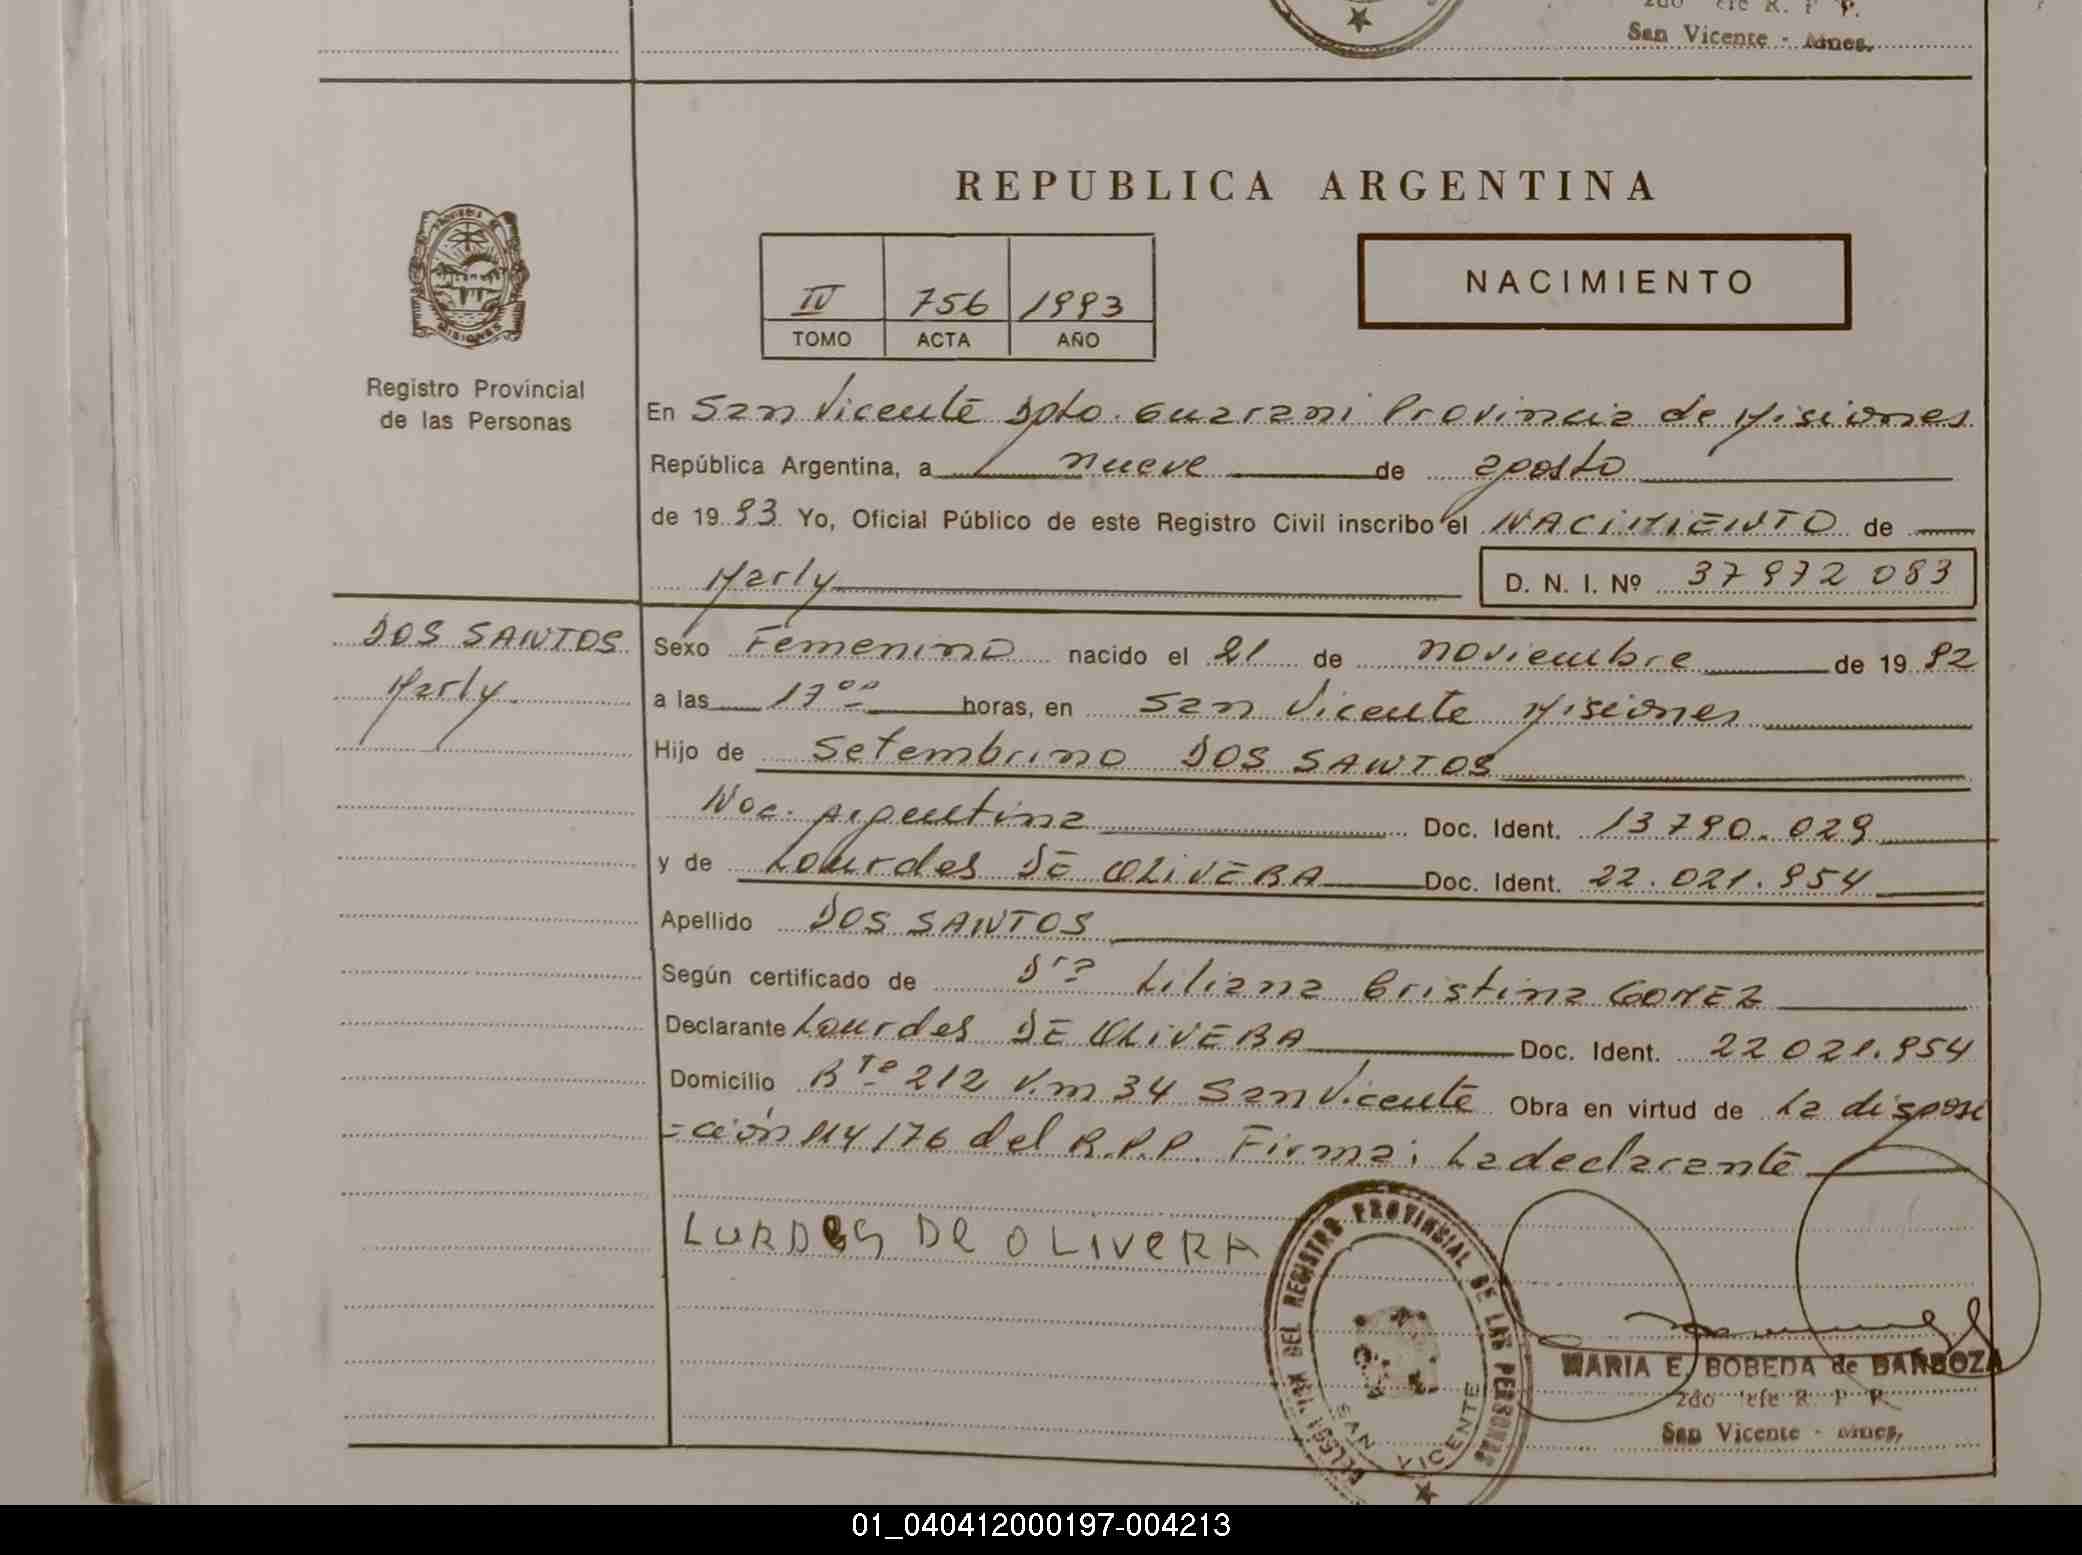 San Vicente - Mnes.
REPUBLICA ARGENTINA
NACIMIENTO
IV 756 1993
TOMO ACTA AÑO
MISIONES
Registro Provincial
de las Personas
En San Vicente Dpto. Guarani Provincia de Misiones
República Argentina, a nueve de agosto
de 19 93 Yo, Oficial Público de este Registro Civil inscribo el NACIMIENTO de
Marly D. N. I. Nº 37972 083
DOS SANTOS
Marly
Sexo Femenino nacido el 21 de noviembre de 19 92
a las 17 ºº horas, en San Vicente Misiones
Hijo de Setembrino DOS SANTOS
Nac. Argentina Doc. Ident. 13790.029
y de Lourdes DE OLIVERA Doc. Ident. 22.021.954
Apellido DOS SANTOS
Según certificado de Dra Liliana Cristina GOMEZ
Declarante Lourdes DE OLIVERA Doc. Ident. 22021.954
Domicilio Rta 212 Km 34 San Vicente Obra en virtud de La disposi
=ción 114/76 del R.P.P. Firma: La declarante
LURDES De OLIVeRA
DEL REGISTRO PROVINCIAL DE LAS PERSONAS
SAN VICENTE
MARIA E. BOBEDA de BARBOZA
2do Jefe R. P. P.
San Vicente - Mnes.
01_040412000197-004213